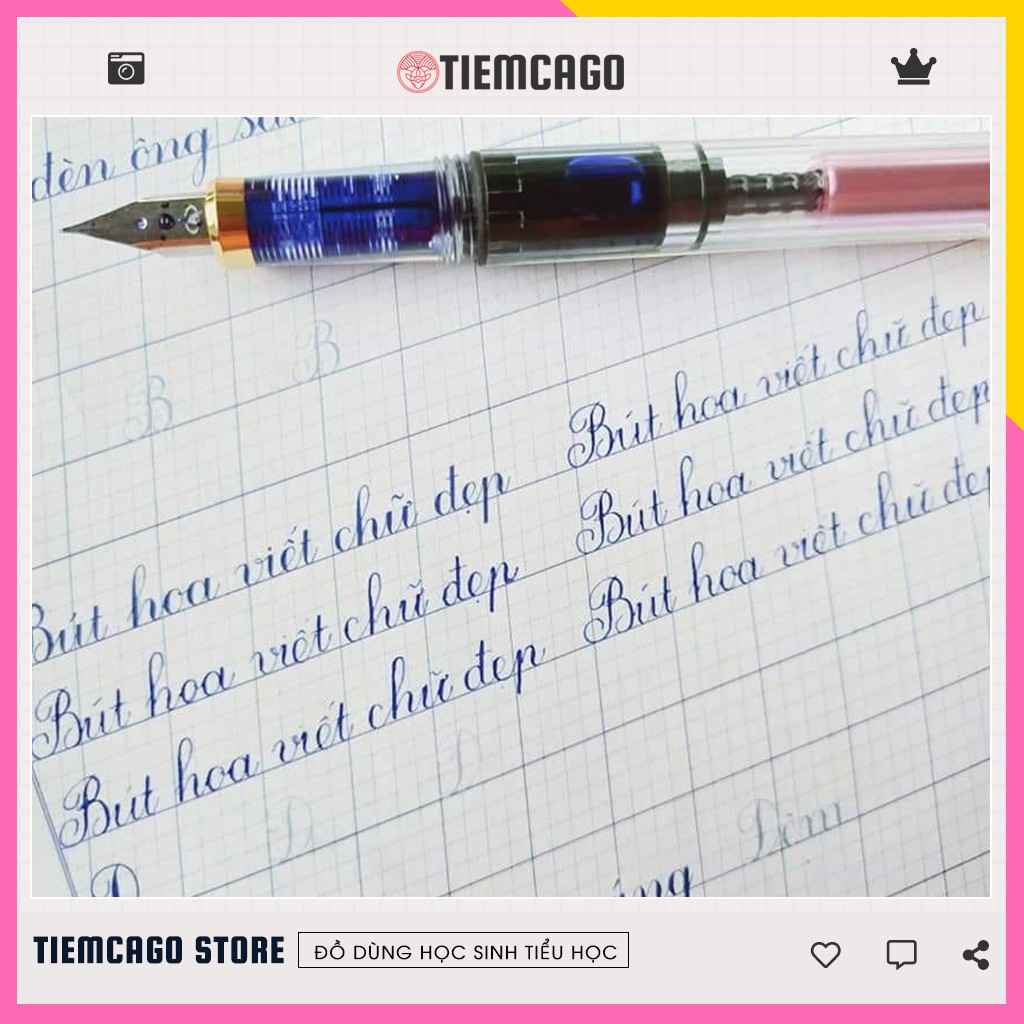 TIEMCAGO
đèn ông
Bút hoa viết chữ đẹp
Bút hoa viết chữ đẹp
Bút hoa viết chữ đẹp
Bút hoa viết chữ đẹp
Bút hoa viết chữ đẹp
Bút hoa viết chữ đẹp
B B
D D
Đêm
TIEMCAGO STORE
ĐỒ DÙNG HỌC SINH TIỂU HỌC